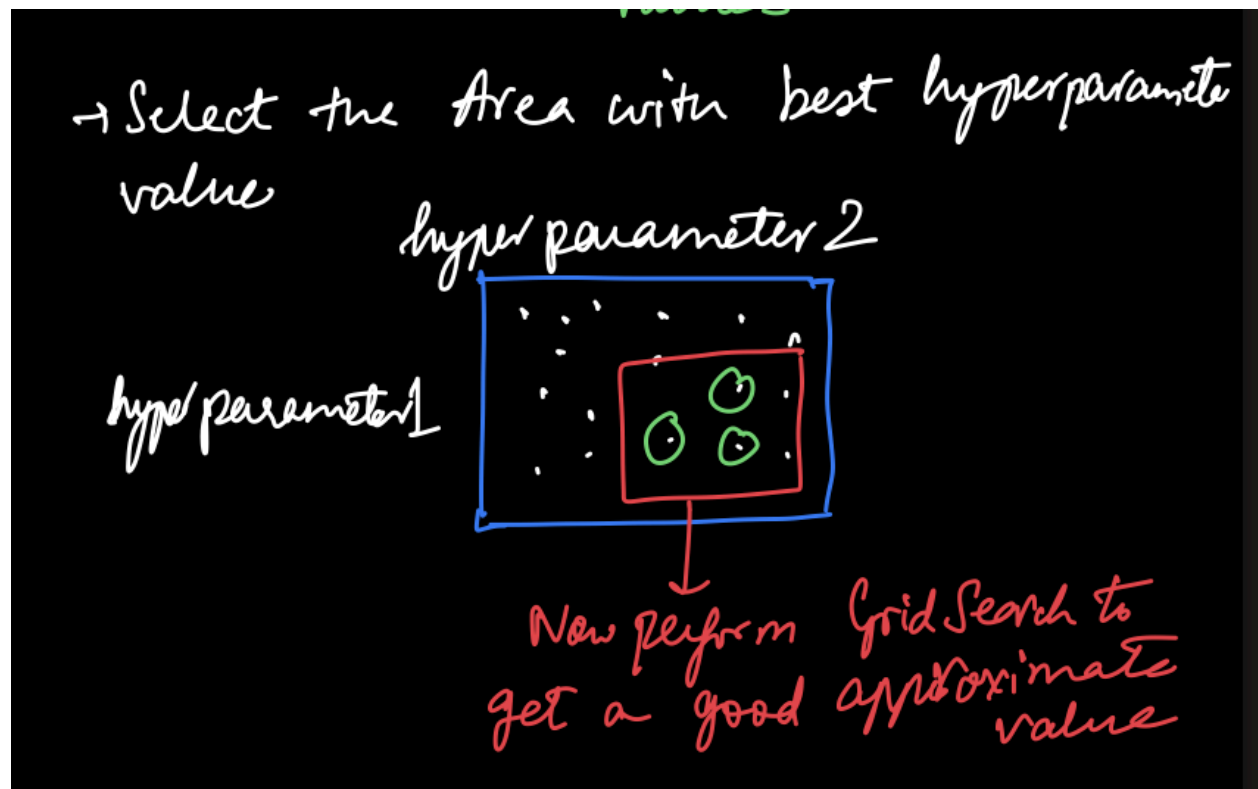 → Select the Area with best hyperparamete
value
hyperparameter 2
hyperparameter1
Now perform Grid Search to
get a good approximate
value